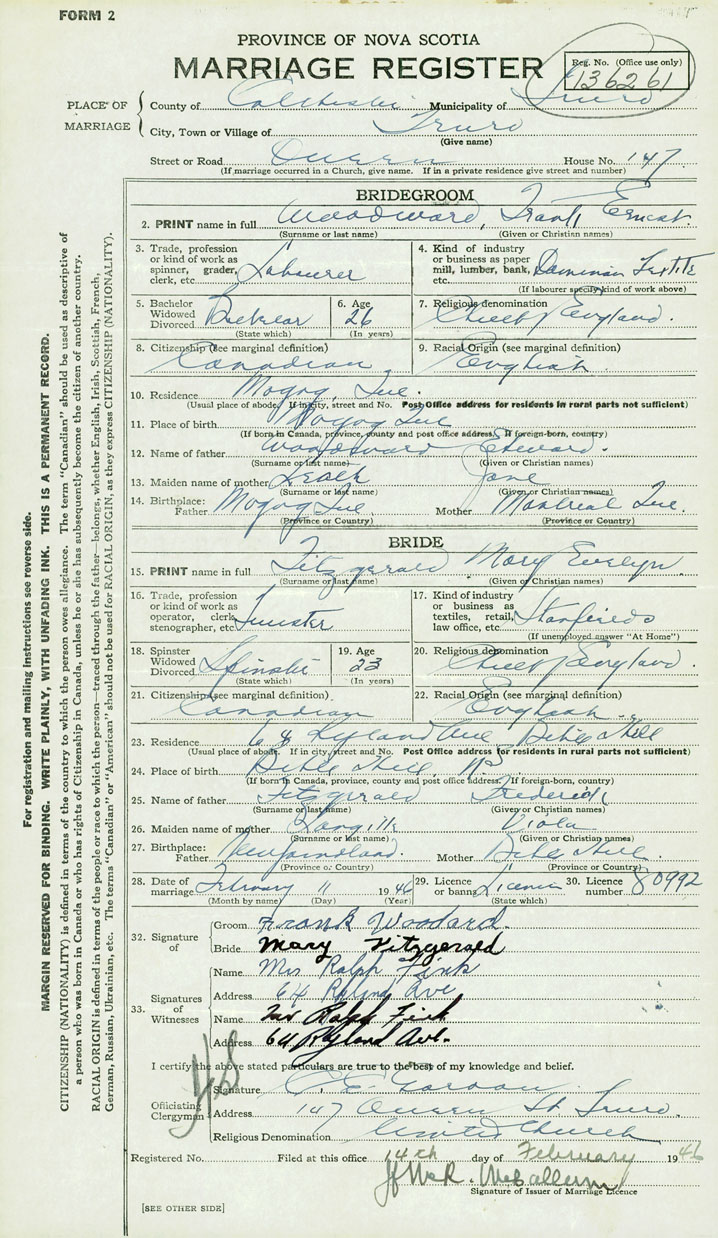 FORM 2
PROVINCE OF NOVA SCOTIA
MARRIAGE REGISTER
Reg. No. (Office use only)
136261
PLACE OF MARRIAGE
County of Colchester Municipality of Truro
City, Town or Village of Truro
(Give name)
Street or Road Queen House No. 147
(If marriage occurred in a Church, give name. If in a private residence give street and number)
BRIDEGROOM
2. PRINT name in full Woodward, Frank Ernest
(Surname or last name) (Given or Christian names)
3. Trade, profession or kind of work as spinner, grader, clerk, etc. Labourer
4. Kind of industry or business as paper mill, lumber, bank, etc. Dominion Textile
(If labourer specify kind of work above)
5. Bachelor Widowed Divorced Bachelor
(State which)
6. Age 26
(In years)
7. Religious denomination Church of England.
8. Citizenship (see marginal definition) Canadian
9. Racial Origin (see marginal definition) English
10. Residence Magog, Que.
(Usual place of abode. If in city, street and No. Post Office address for residents in rural parts not sufficient)
11. Place of birth Magog Que
(If born in Canada, province, county and post office address. If foreign-born, country)
12. Name of father Woodward Edward.
(Surname or last name) (Given or Christian names)
13. Maiden name of mother Jane
(Surname or last name) (Given or Christian names)
14. Birthplace: Father Magog Que. Mother Montreal Que.
(Province or Country) (Province or Country)
BRIDE
15. PRINT name in full Fitzgerald Mary Evelyn.
(Surname or last name) (Given or Christian names)
16. Trade, profession or kind of work as operator, clerk, stenographer, etc.
17. Kind of industry or business as textiles, retail, law office, etc. Stanfields
(If unemployed answer "At Home")
18. Spinster Widowed Divorced Spinster
(State which)
19. Age 23
(In years)
20. Religious denomination Church of England.
21. Citizenship (see marginal definition) Canadian
22. Racial Origin (see marginal definition) English
23. Residence 64 Ryland Ave Bible Hill
(Usual place of abode. If in city, street and No. Post Office address for residents in rural parts not sufficient)
24. Place of birth Bible Hill, N.S.
(If born in Canada, province, county and post office address. If foreign-born, country)
25. Name of father Fitzgerald Frederick
(Surname or last name) (Given or Christian names)
26. Maiden name of mother Langille Viola
(Surname or last name) (Given or Christian names)
27. Birthplace: Father Newfoundland. Mother Bible Hill
(Province or Country) (Province or Country)
28. Date of marriage February 11 1946
(Month by name) (Day) (Year)
29. Licence or banns Licence
(State which)
30. Licence number 80992
32. Signature of
Groom Frank Woodard.
Bride Mary Fitzgerald
33. Signatures of Witnesses
Name Mrs Ralph Fink
Address 64 Ryland Ave
Name Mr Ralph Fink
Address 64 Ryland Ave.
I certify the above stated particulars are true to the best of my knowledge and belief.
Officiating Clergyman
Signature C. E. Gordon
Address 147 Queen St Truro.
Religious Denomination United Church
Registered No. Filed at this office 14th day of February 1946
McCallum
Signature of Issuer of Marriage Licence
[SEE OTHER SIDE]
For registration and mailing instructions see reverse side.
MARGIN RESERVED FOR BINDING. WRITE PLAINLY, WITH UNFADING INK. THIS IS A PERMANENT RECORD.
CITIZENSHIP (NATIONALITY) is defined in terms of the country to which the person owes allegiance. The term "Canadian" should be used as descriptive of
a person who was born in Canada or who has rights of Citizenship in Canada, unless he or she has subsequently become the citizen of another country.
RACIAL ORIGIN is defined in terms of the people or race to which the person—traced through the father—belongs, whether English, Irish, Scottish, French,
German, Russian, Ukrainian, etc. The terms "Canadian" or "American" should not be used for RACIAL ORIGIN, as they express CITIZENSHIP (NATIONALITY).